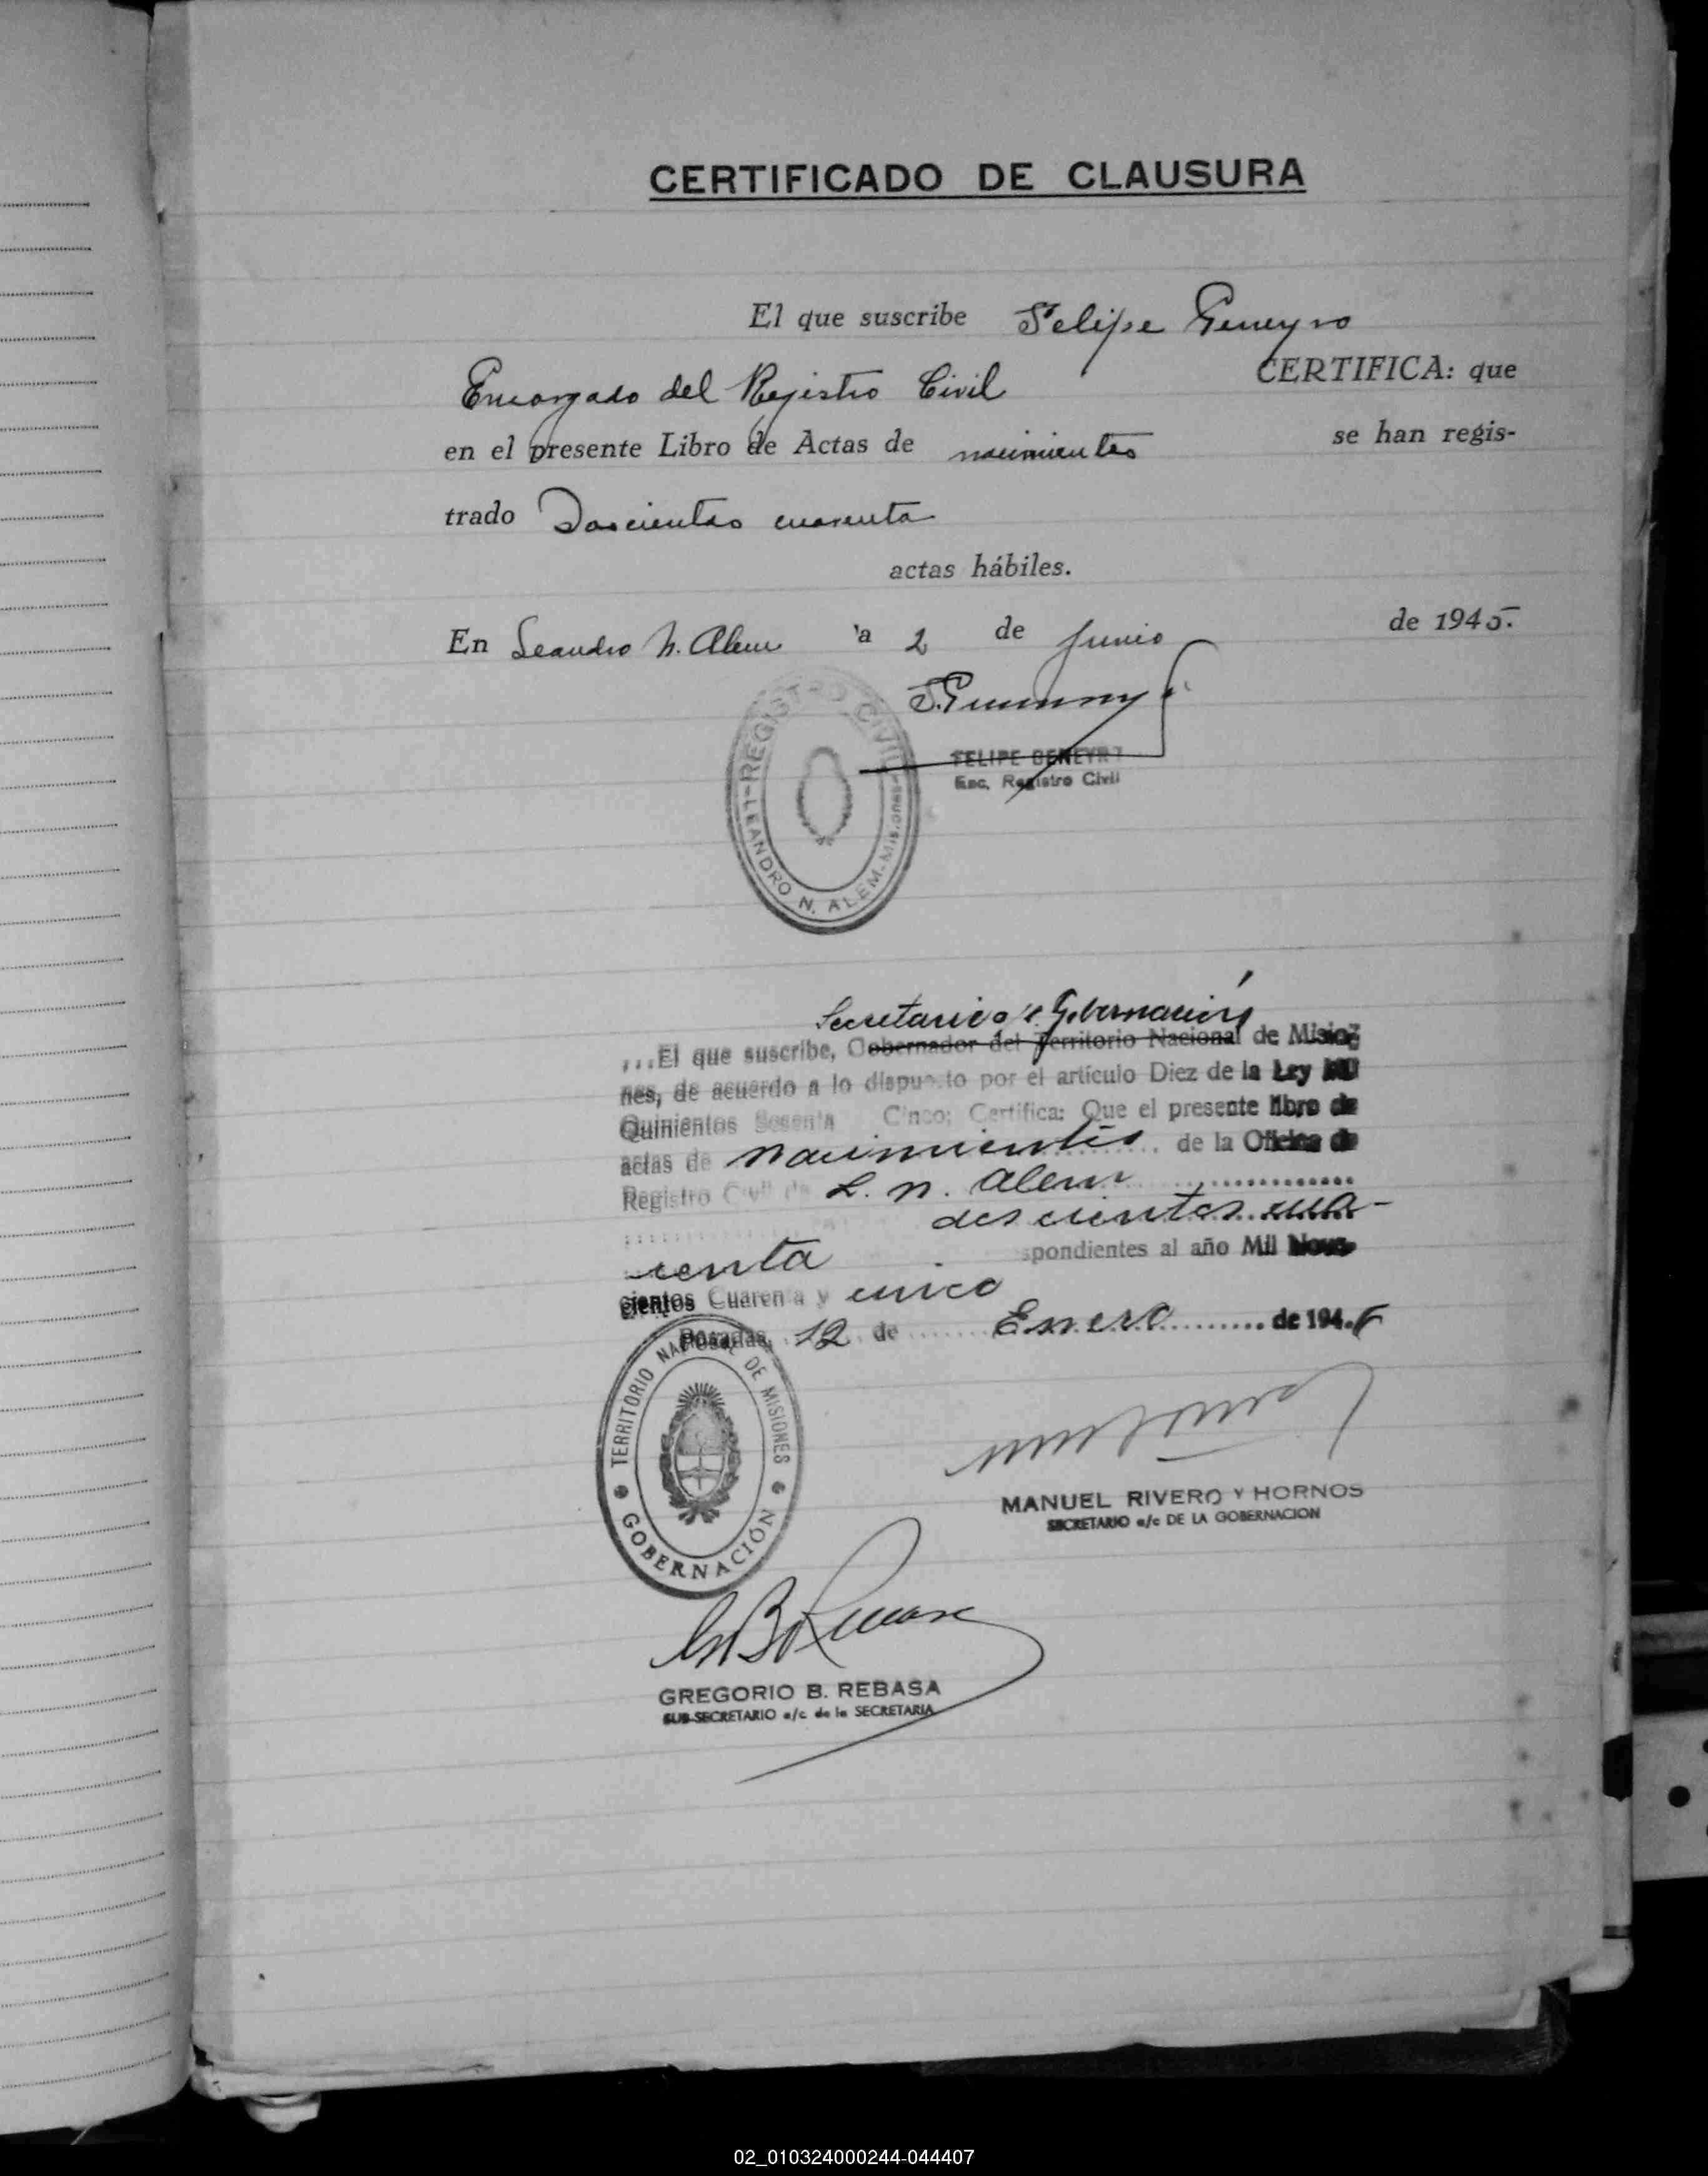 CERTIFICADO DE CLAUSURA
El que suscribe Felipe Geneyro
Encargado del Registro Civil CERTIFICA: que
en el presente Libro de Actas de nacimientos se han regis-
trado Doscientos cuarenta
actas hábiles.
En Leandro N. Alem a 2 de Junio de 1945.
REGISTRO CIVIL
LEANDRO N. ALEM - Misiones
FELIPE GENEYRO
Enc. Registro Civil
Secretario Gobernación
...El que suscribe, Gobernador del Territorio Nacional de Misio-
nes, de acuerdo a lo dispuesto por el artículo Diez de la Ley Mil
Quinientos Sesenta Cinco; Certifica: Que el presente libro de
actas de nacimientos de la Oficina de
Registro Civil de L. N. Alem
doscientos cua-
renta spondientes al año Mil Nove-
cientos Cuarenta y cinco
Posadas, 12 de Enero de 1946
TERRITORIO NACIONAL DE MISIONES
GOBERNACIÓN
MANUEL RIVERO Y HORNOS
SECRETARIO a/c DE LA GOBERNACION
GREGORIO B. REBASA
SUB-SECRETARIO a/c de la SECRETARIA
02_010324000244-044407